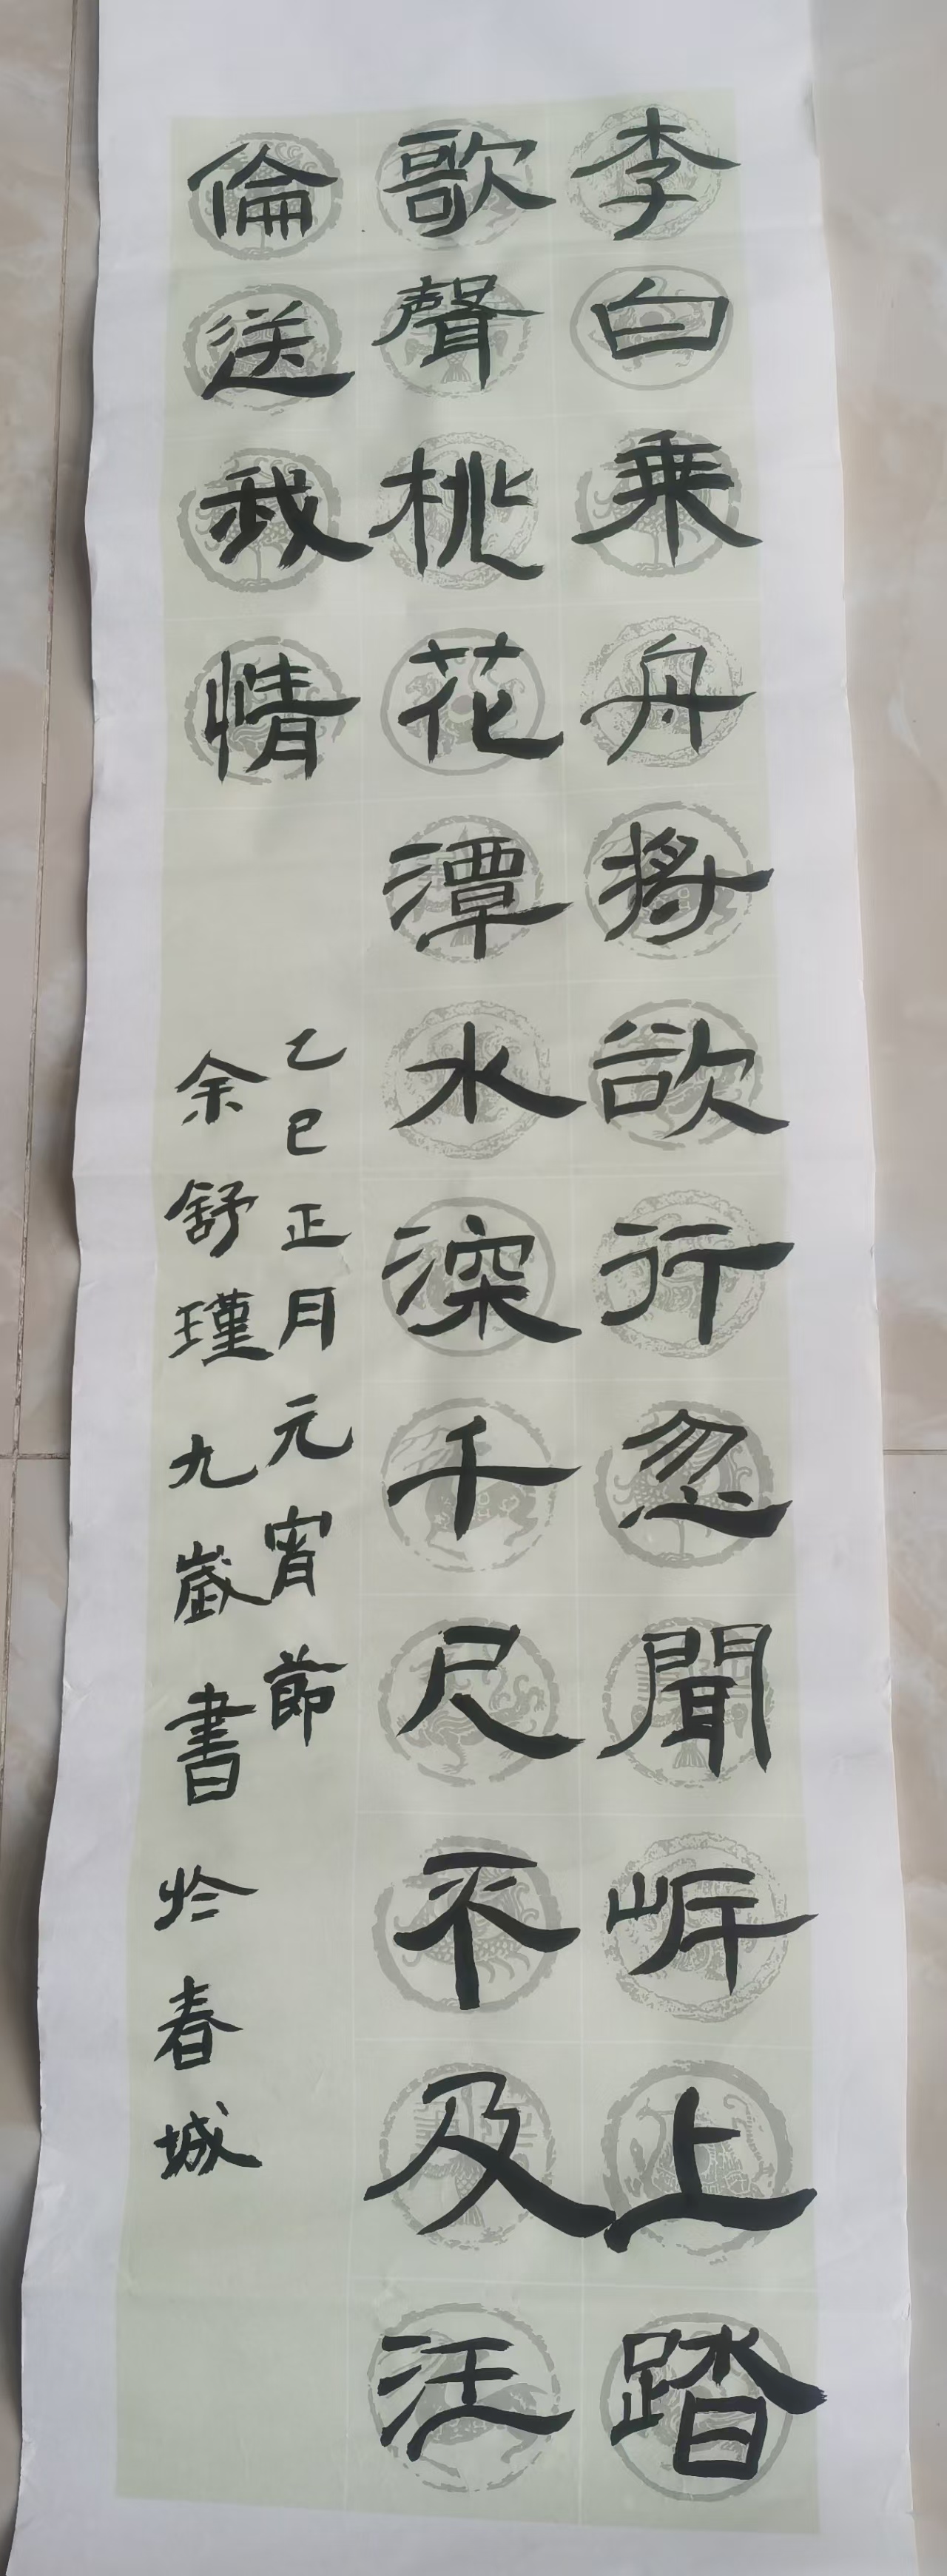 李白乘舟將欲行忽聞岍上踏
歌聲桃花潭水深千尺不及汪
倫送我情
乙巳正月元宵節
余舒瑾九歲書於春城